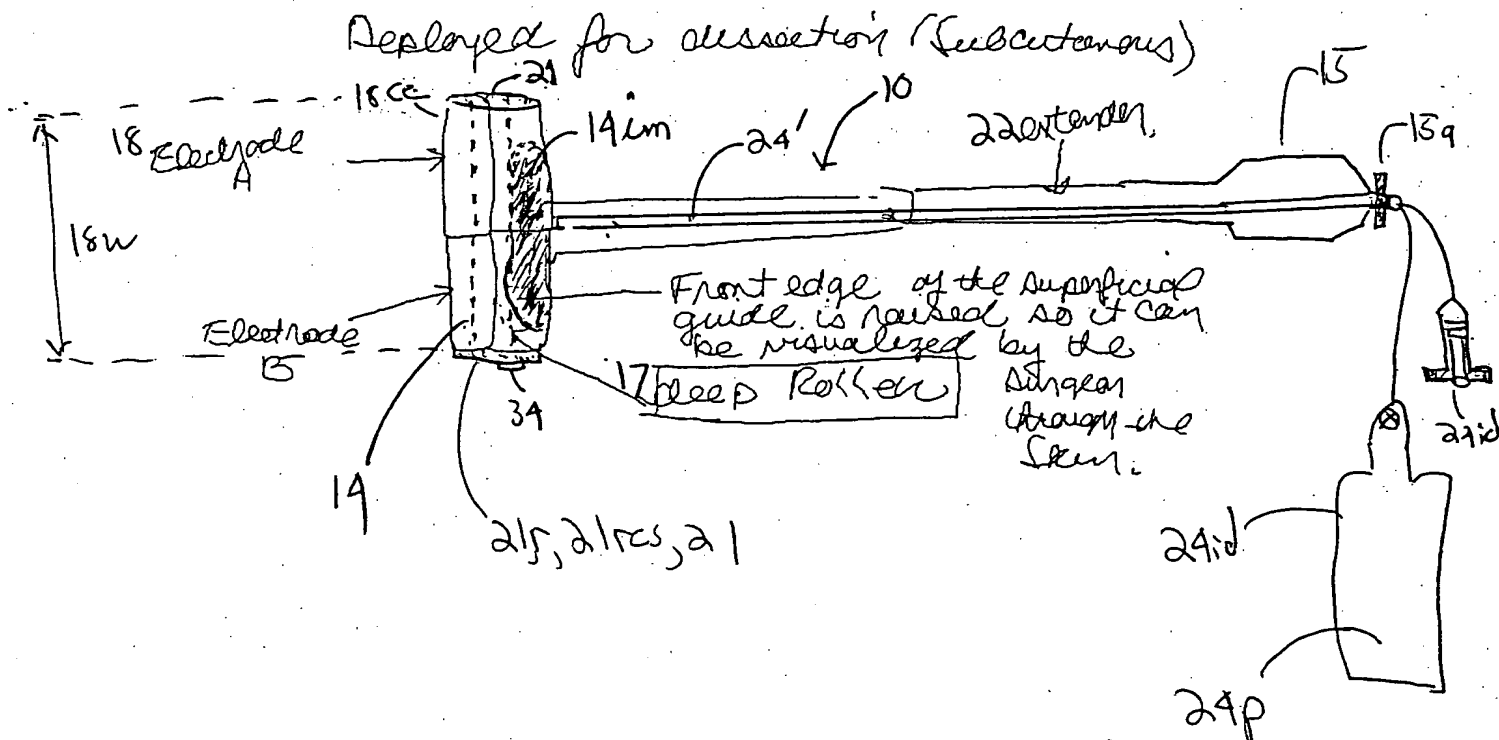 Deployed for dissection (Subcutaneous)
21
18cc
10
15
15a
14im
24'
22 extender
18 Electrode
A
18w
Front edge of the superficial
guide is raised so it can
be visualized by the
surgeon
through the
skin.
Electrode
B
17 Deep Roller
34
24id
14
21r, 21rcs, 21
24id
24p